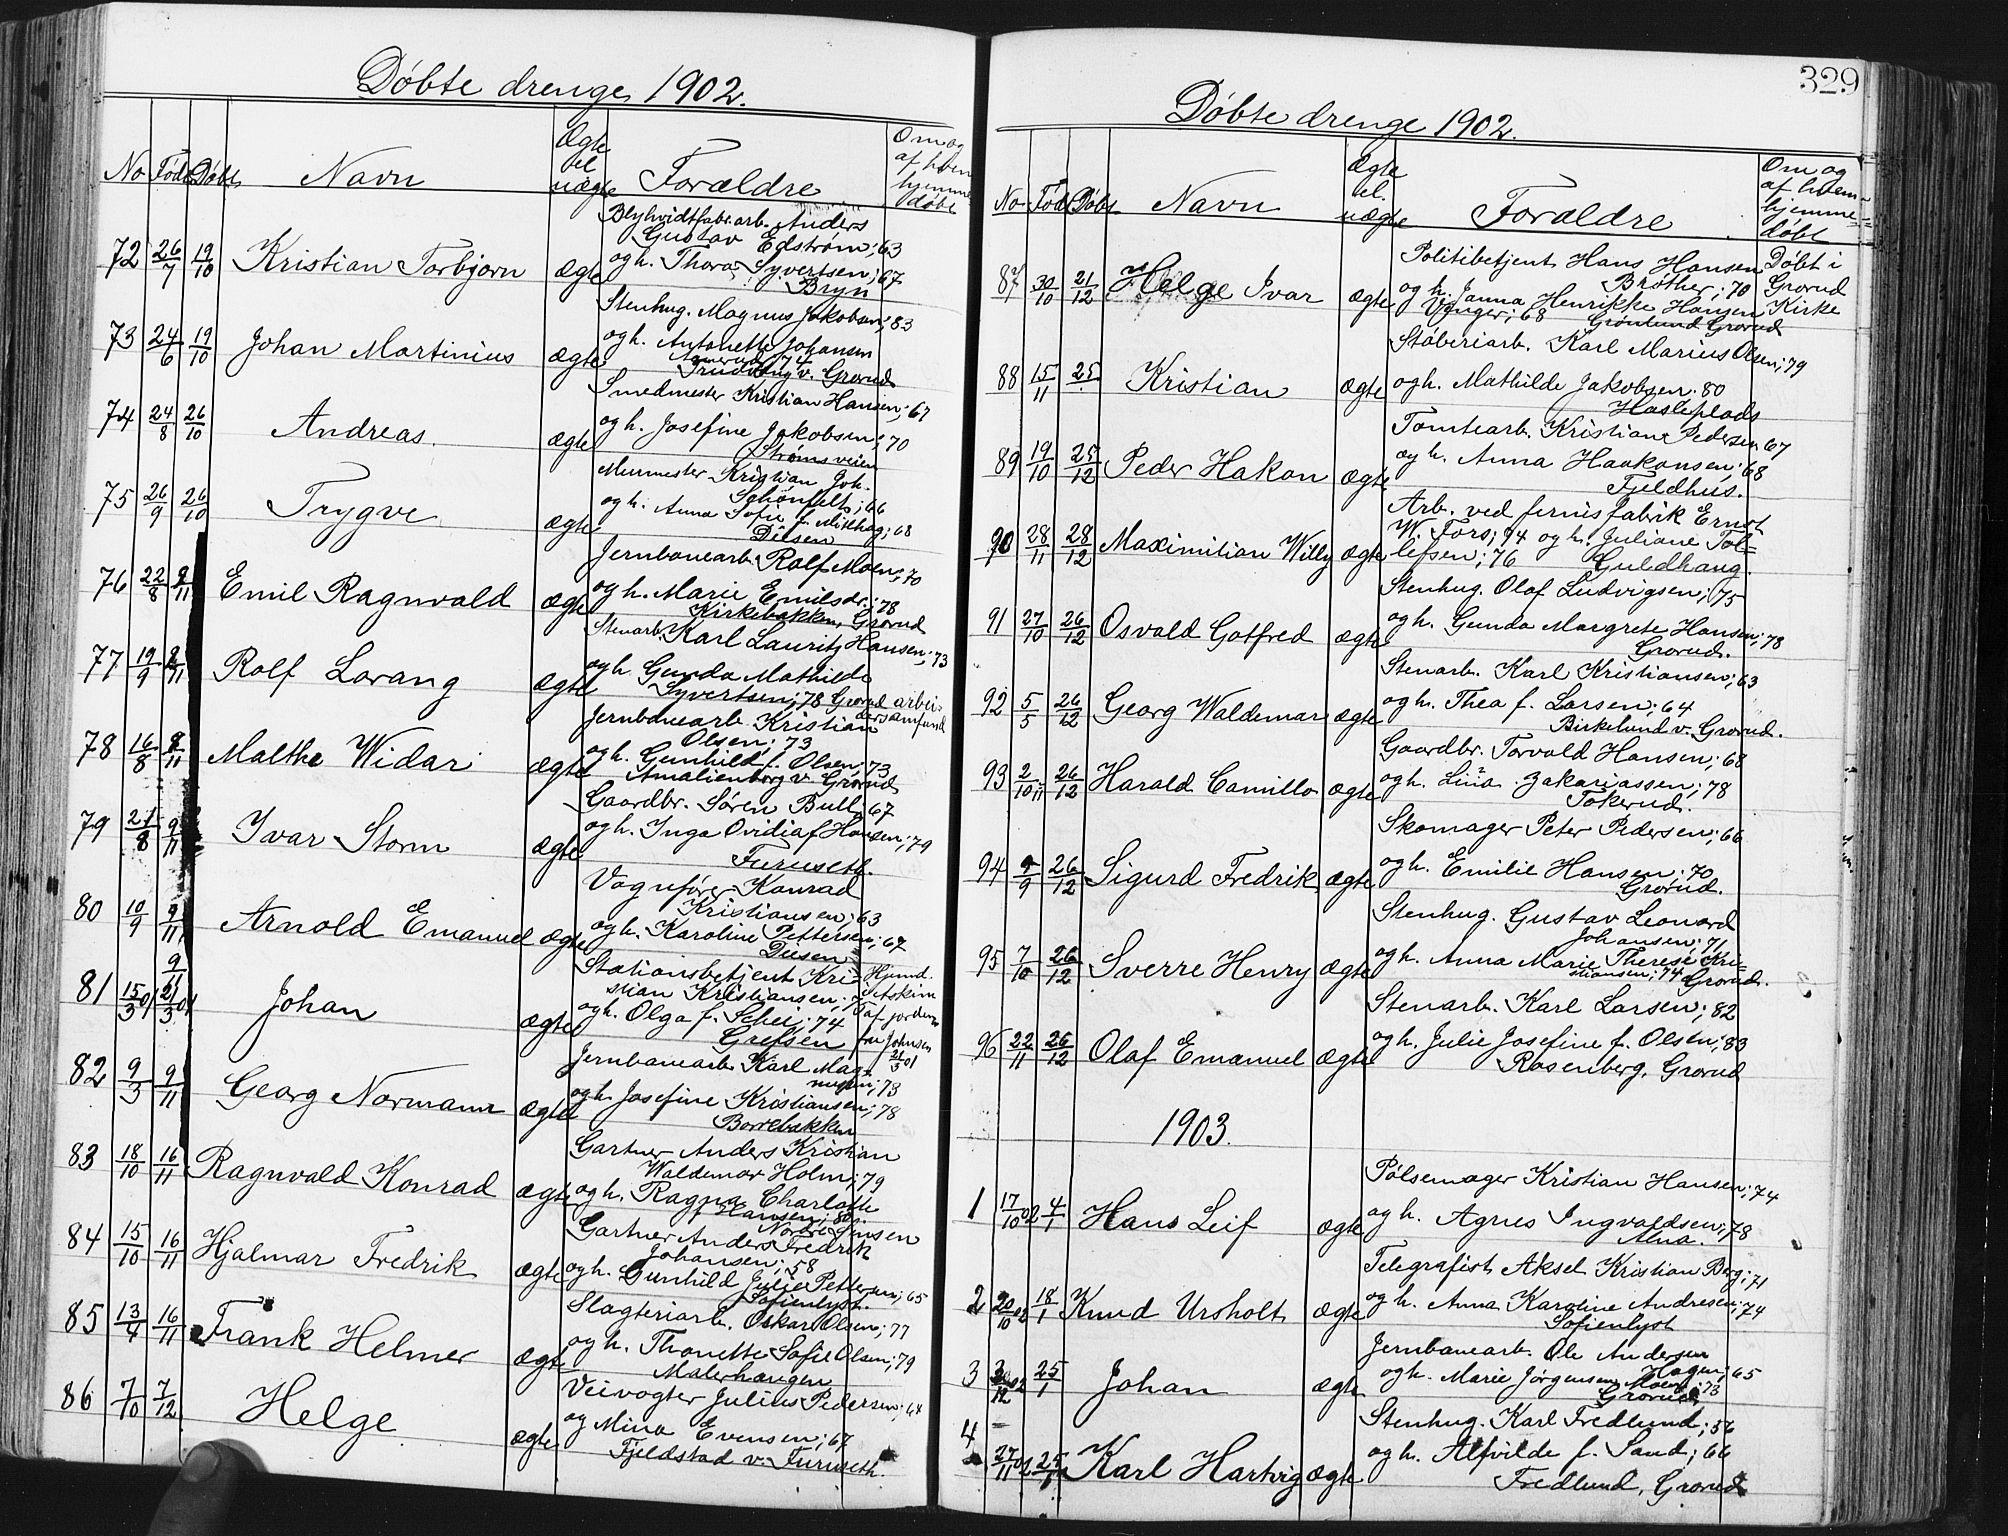 Døbte drenge 1902.
No Født Døbt Navn Ægte el. uægte Forældre Om og af hvem hjemmedøbt
72 26/7 19/10 Kristian Torbjørn ægte
Blyhvidtfabr.arb. Anders
Gustav Edstrøm; 63
og h. Thora Syvertsen; 67
Bryn
73 24/6 19/10 Johan Martinius ægte
Stenhug. Magnus Jakobsen; 83
og h. Antonette Johansen
v. Grorud
74 24/8 26/10 Andreas. ægte
Smedmester Kristian Hansen; 67
og h. Josefine Jakobsen; 70
Strømsveien
75 26/9 26/10 Trygve ægte
Murmester Kristian Joh.
Schönfelt; 66
og h. Anna Sofie f. Milthag; 68
Disen
76 22/8 9/11 Emil Ragnvald ægte
Jernbanearb. Rolf Moen; 70
og h. Marie Emilsdr.; 78
Kirkebakken, Grorud
77 19/9 9/11 Rolf Lorang ægte
Stenarb. Karl Lauritz Hansen; 73
og h. Gunda Mathilde
Syvertsen; 78 Grorud arbeidersamfund
78 16/8 9/11 Malthe Widar ægte
Jernbanearb. Kristian
Olsen; 73
og h. Gunhild f. Olsen; 73
Amalienborg v. Grorud
79 21/8 9/11 Ivar Storm ægte
Gaardbr. Søren Bull; 67
og h. Inga Ovidia f. Hansen; 79
Furuseth.
80 10/9 9/11 Arnold Emanuel ægte
Vognfører Konrad
Kristiansen; 63
og h. Karoline Pettersen; 67
Disen
81 15/3 01 9/11 21/3 01 Johan ægte
Stationsbetjent Kristian Kristiansen; 75
og h. Olga f. Schei; 74
Grefsen
Hjemd. i Askim af jordem. fru Johnsen 21/3 01
82 9/3 9/11 Georg Normann ægte
Jernbanearb. Karl Magnussen; 73
og h. Josefine Kristiansen; 78
Borrebakken
83 18/10 16/11 Ragnvald Konrad ægte
Gartner Anders Kristian
Waldemar Holm; 79
og h. Ragna Charlotte
f. Hansen; 80.
Nordre Sinsen
84 15/10 16/11 Hjalmar Fredrik ægte
Gartner Anders Fredrik
Johansen; 58
og h. Gunhild Julie Pettersen; 65
Sofienlyst.
85 13/4 16/11 Frank Helmer ægte
Slagteriarb. Oskar Olsen; 77
og h. Thonette Sofie Olsen; 79
Malerhaugen
86 7/10 7/12 Helge ægte
Veivogter Julius Pedersen; 64
og Mina Evensen; 67
Fjeldstad v. Furuseth.
329
Døbte drenge 1902.
No Født Døbt Navn Ægte el. uægte Forældre Om og af hvem hjemmedøbt
87 30/10 21/12 Helge Ivar ægte
Politibetjent Hans Hansen
Brøther; 70
og h. Janna Henrikke Hansen
Venger; 68 Grønlund Grorud
Døbt i Grorud Kirke
88 15/11 25 Kristian ægte
Støberiarb. Karl Marius Olsen; 79
og h. Mathilde Jakobsen. 80
Hasleplads
89 19/10 25/12 Peder Hakon ægte
Tomtearb. Kristian Pedersen 67
og h. Anna Haakonsen; 68
Fjeldhus.
90 28/11 28/12 Maximilian Willy ægte
Arb. ved fernisfabrik Ernst
W. Fors; 74 og h. Juliane Tollefsen; 76 Guldhaug.
91 27/10 26/12 Osvald Gotfred ægte
Stenhug. Olaf Ludvigsen; 75
og h. Gunda Margrete Hansen; 78
Grorud.
92 5/5 26/12 Georg Waldemar ægte
Stenarb. Karl Kristiansen; 63
og h. Thea f. Larsen; 64
Birkelund v. Grorud.
93 2/10 11 26/12 Harald Camillo ægte
Gaardbr. Torvald Hansen; 68
og h. Lina Zakariassen; 78
Tokerud.
94 9/9 26/12 Sigurd Fredrik ægte
Skomager Peter Pedersen; 66
og h. Emilie Hansen; 70
Grorud.
95 7/10 26/12 Sverre Henry ægte
Stenhug. Gustav Leonard
Johansen; 71
og h. Anna Marie Therese Kristiansen; 74 Grorud.
96 22/11 26/12 Olaf Emanuel ægte
Stenarb. Karl Larsen; 82
og h. Julie Josefine f. Olsen; 83
Rosenberg, Grorud
1903.
1 17/10 02 4/1 Hans Leif ægte
Pølsemager Kristian Hansen; 74
og h. Agnes Ingvaldsen; 78
Alna.
2 20/10 02 18/1 Knud Ursholt ægte
Telegrafist Aksel Kristian Berg; 71
og h. Anna Karoline Andresen; 74
Sofienlyst
3 12 02 25/1 Johan ægte
Jernbanearb. Ole Andersen
Hagen; 65
og h. Marie Jørgensen Moen; 73
Grorud
4 27/11 02 25/1 Karl Hartvig ægte
Stenhug. Karl Fredlund; 56
og h. Alfvilde f. Sand; 66
Fredlund, Grorud